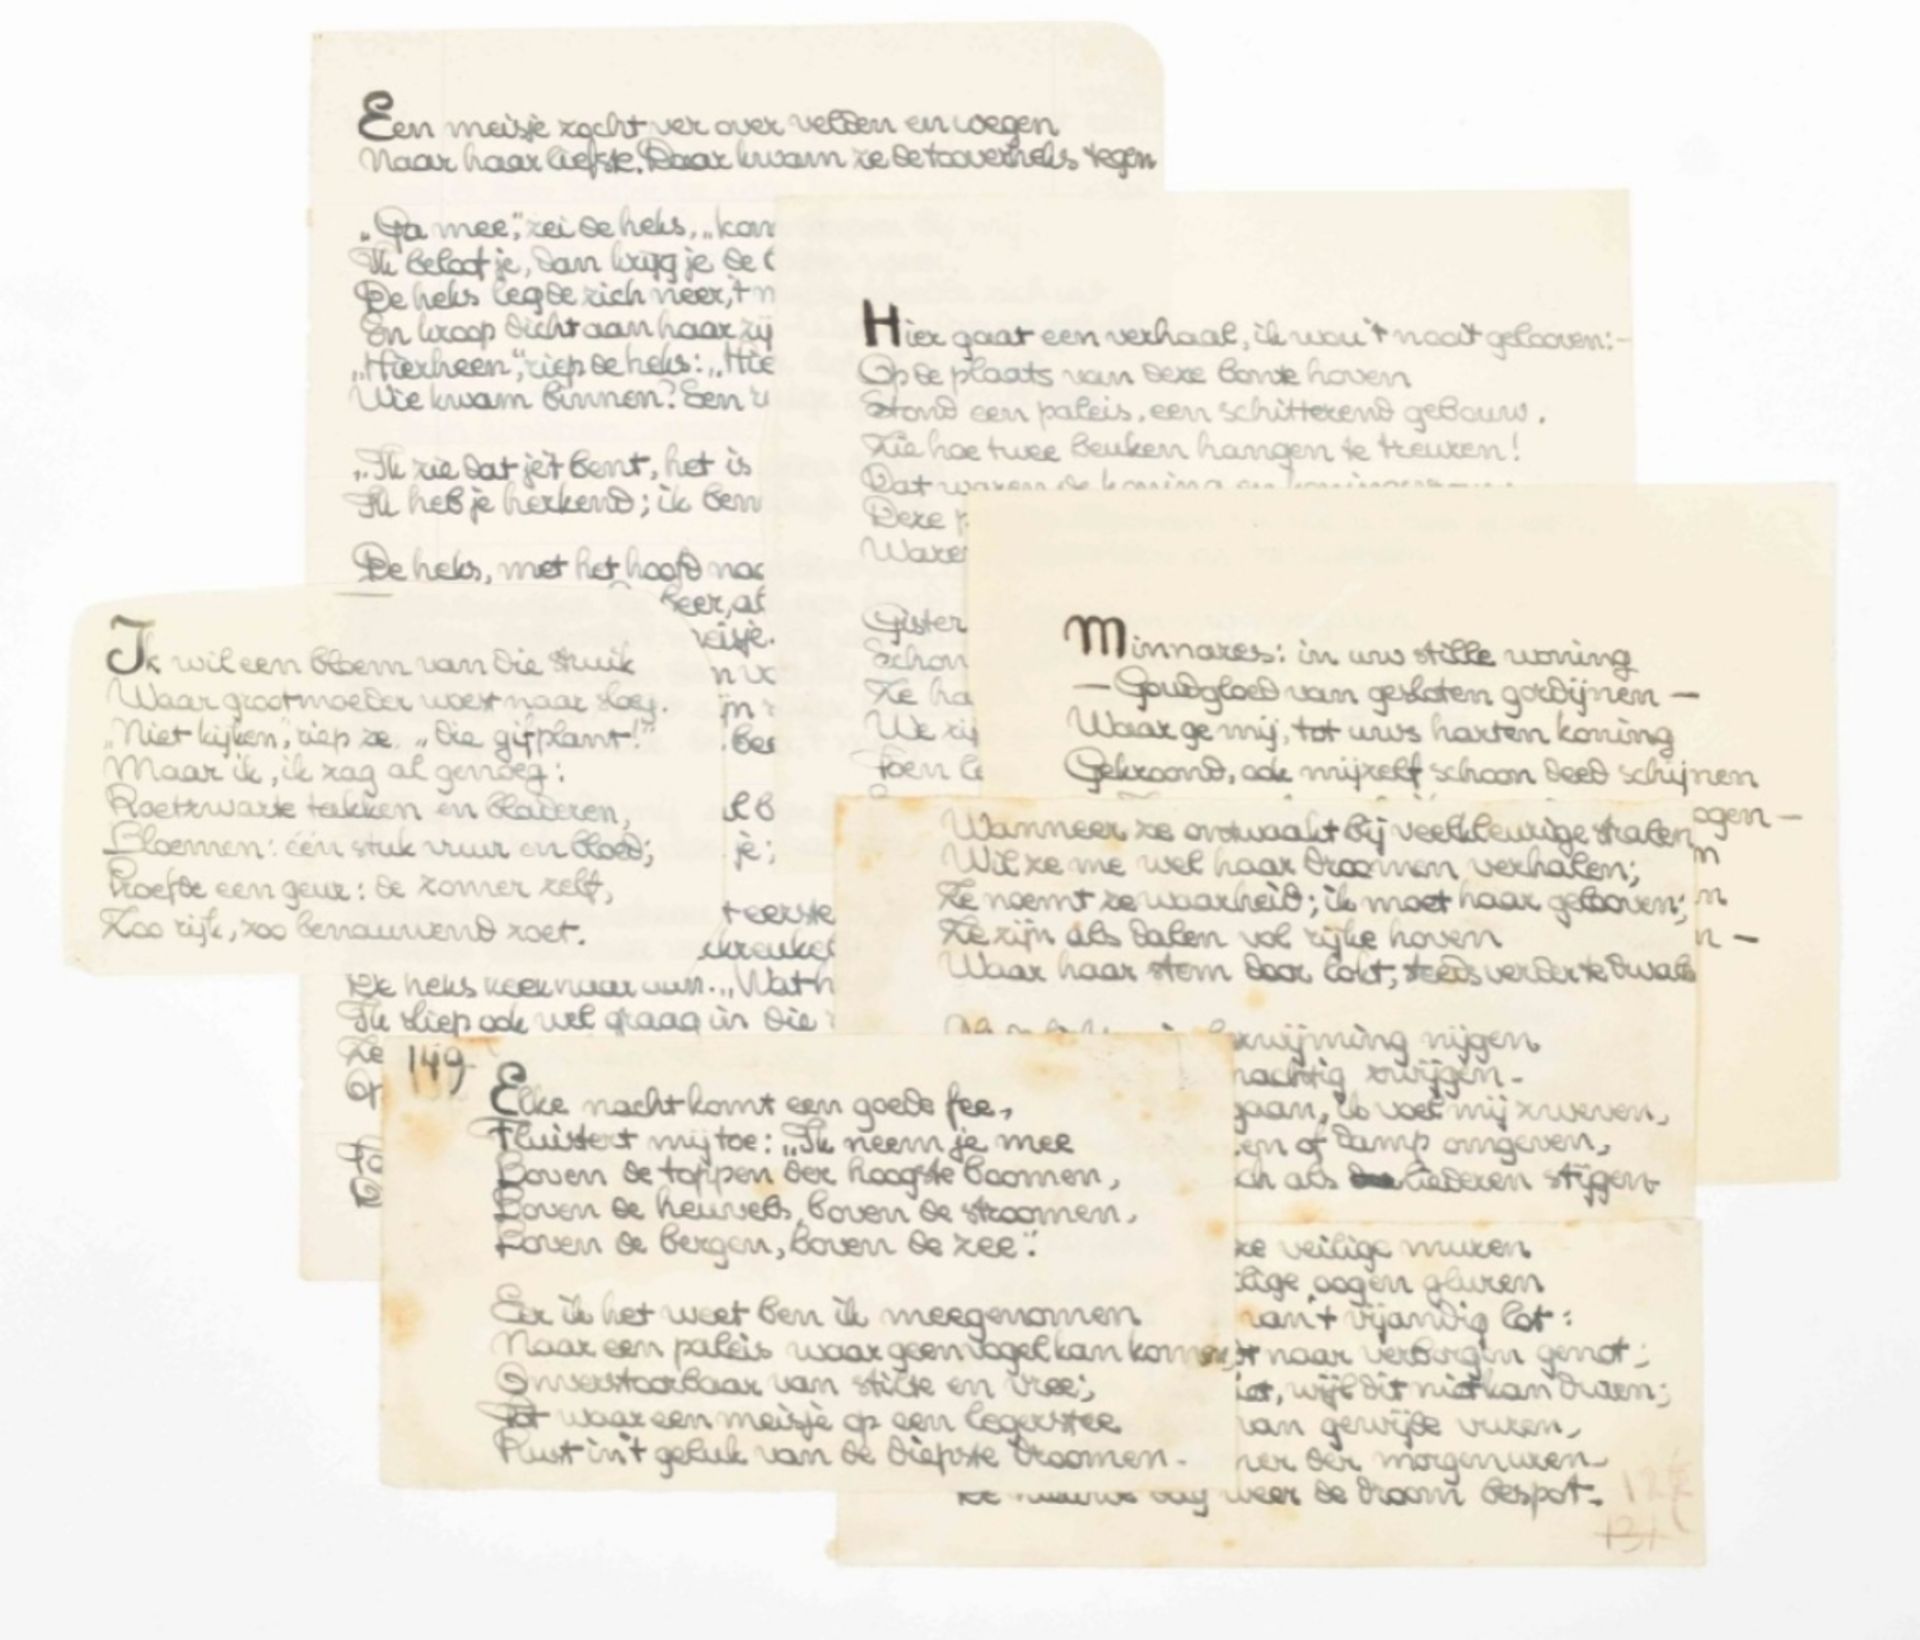 Een meisje zocht ver over velden en wegen
Naar haar liefste. Daar kwam ze de tooverheks tegen
„Ga mee”, zei de heks, „kom
Ik beloof je, dan krijg je de
De heks legde zich neer, 't m
En kroop dicht aan haar zij
„Hierheen”, riep de heks: „Hie
Wie kwam binnen? Een
„Ik zie dat je 't bent, het is
Ik heb je herkend; ik ben
De heks, met het hoofd naa
eisje.
t eerste
kreukel
De heks keek naar „Wat h
Ik sliep ook wel graag in die
Ze
Hier gaat een verhaal, ik wou 't nooit gelooven:-
Op de plaats van deze bonte hoven
Stond een paleis, een schitterend gebouw.
Zie hoe twee beuken hangen te treuren!
Dat waren de koning en koningsvrouw
Deze p
Waren
Gister
Schon
Ze ha
We zij
Toen le
Minnares: in uw stille woning
— Goudgloed van gesloten gordijnen —
Waar ge mij, tot uws harten koning
Gekroond, ook mijzelf schoon deed schijnen
ogen —
n
n —
Ik wil een bloem van die struik
Waar grootmoeder woest naar sloeg.
„Niet kijken”, riep ze, „die gifplant!”
Maar ik, ik zag al genoeg:
Roetzwarte takken en bladeren,
Bloemen: één stuk vuur en bloed;
Proefde een geur: de zomer zelf,
Zoo rijk, zoo benauwend zoet.
Wanneer ze ontwaakt bij veelkleurige stralen
Wil ze me wel haar droomen verhalen;
Ze noemt ze waarheid; ik moet haar gelooven;
Ze zijn als dalen vol rijke hoven
Waar haar stem door lokt, steeds verder te dwalen
zwijming nijgen
nachtig zwijgen.
gaan, ik voel mij zweven,
en of damp omgeven,
ch als liederen stijgen
149
Elke nacht komt een goede fee,
Fluistert mij toe: „Ik neem je mee
Boven de toppen der hoogste boomen,
Boven de heuvels, boven de stroomen,
Boven de bergen, boven de zee”.
Eer ik het weet ben ik meegenomen
Naar een paleis waar geen vogel kan komen,
Onverstoorbaar van stilte en vree;
Tot waar een meisje op een legerstee
Rust in 't geluk van de diepste droomen.
ze veilige muren
ilige oogen gluren
van 't vijandig lot:
t naar verborgen genot;
iet, wijl dit niet kan duren;
van gewijde vuren,
mer der morgenuren
De nieuwe dag weer de droom bespot.
131